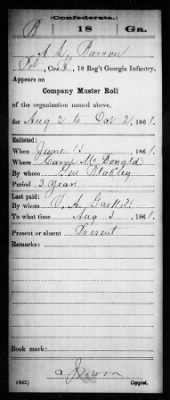 Confederate.
B 18 Ga.
Barron
Pvt, Co. , 18 Reg't Georgia Infantry.
Appears on
Company Muster Roll
of the organization named above,
for Aug 2 to Oct 2, 1861.
Enlisted:
When June 13, 1861.
Where Camp McDonald
By whom Blakley
Period 3 Years
Last paid:
By whom V. A. Gaskill
To what time Aug 3, 1861.
Present or absent Present
Remarks:
Book mark:
(642) Copyist.